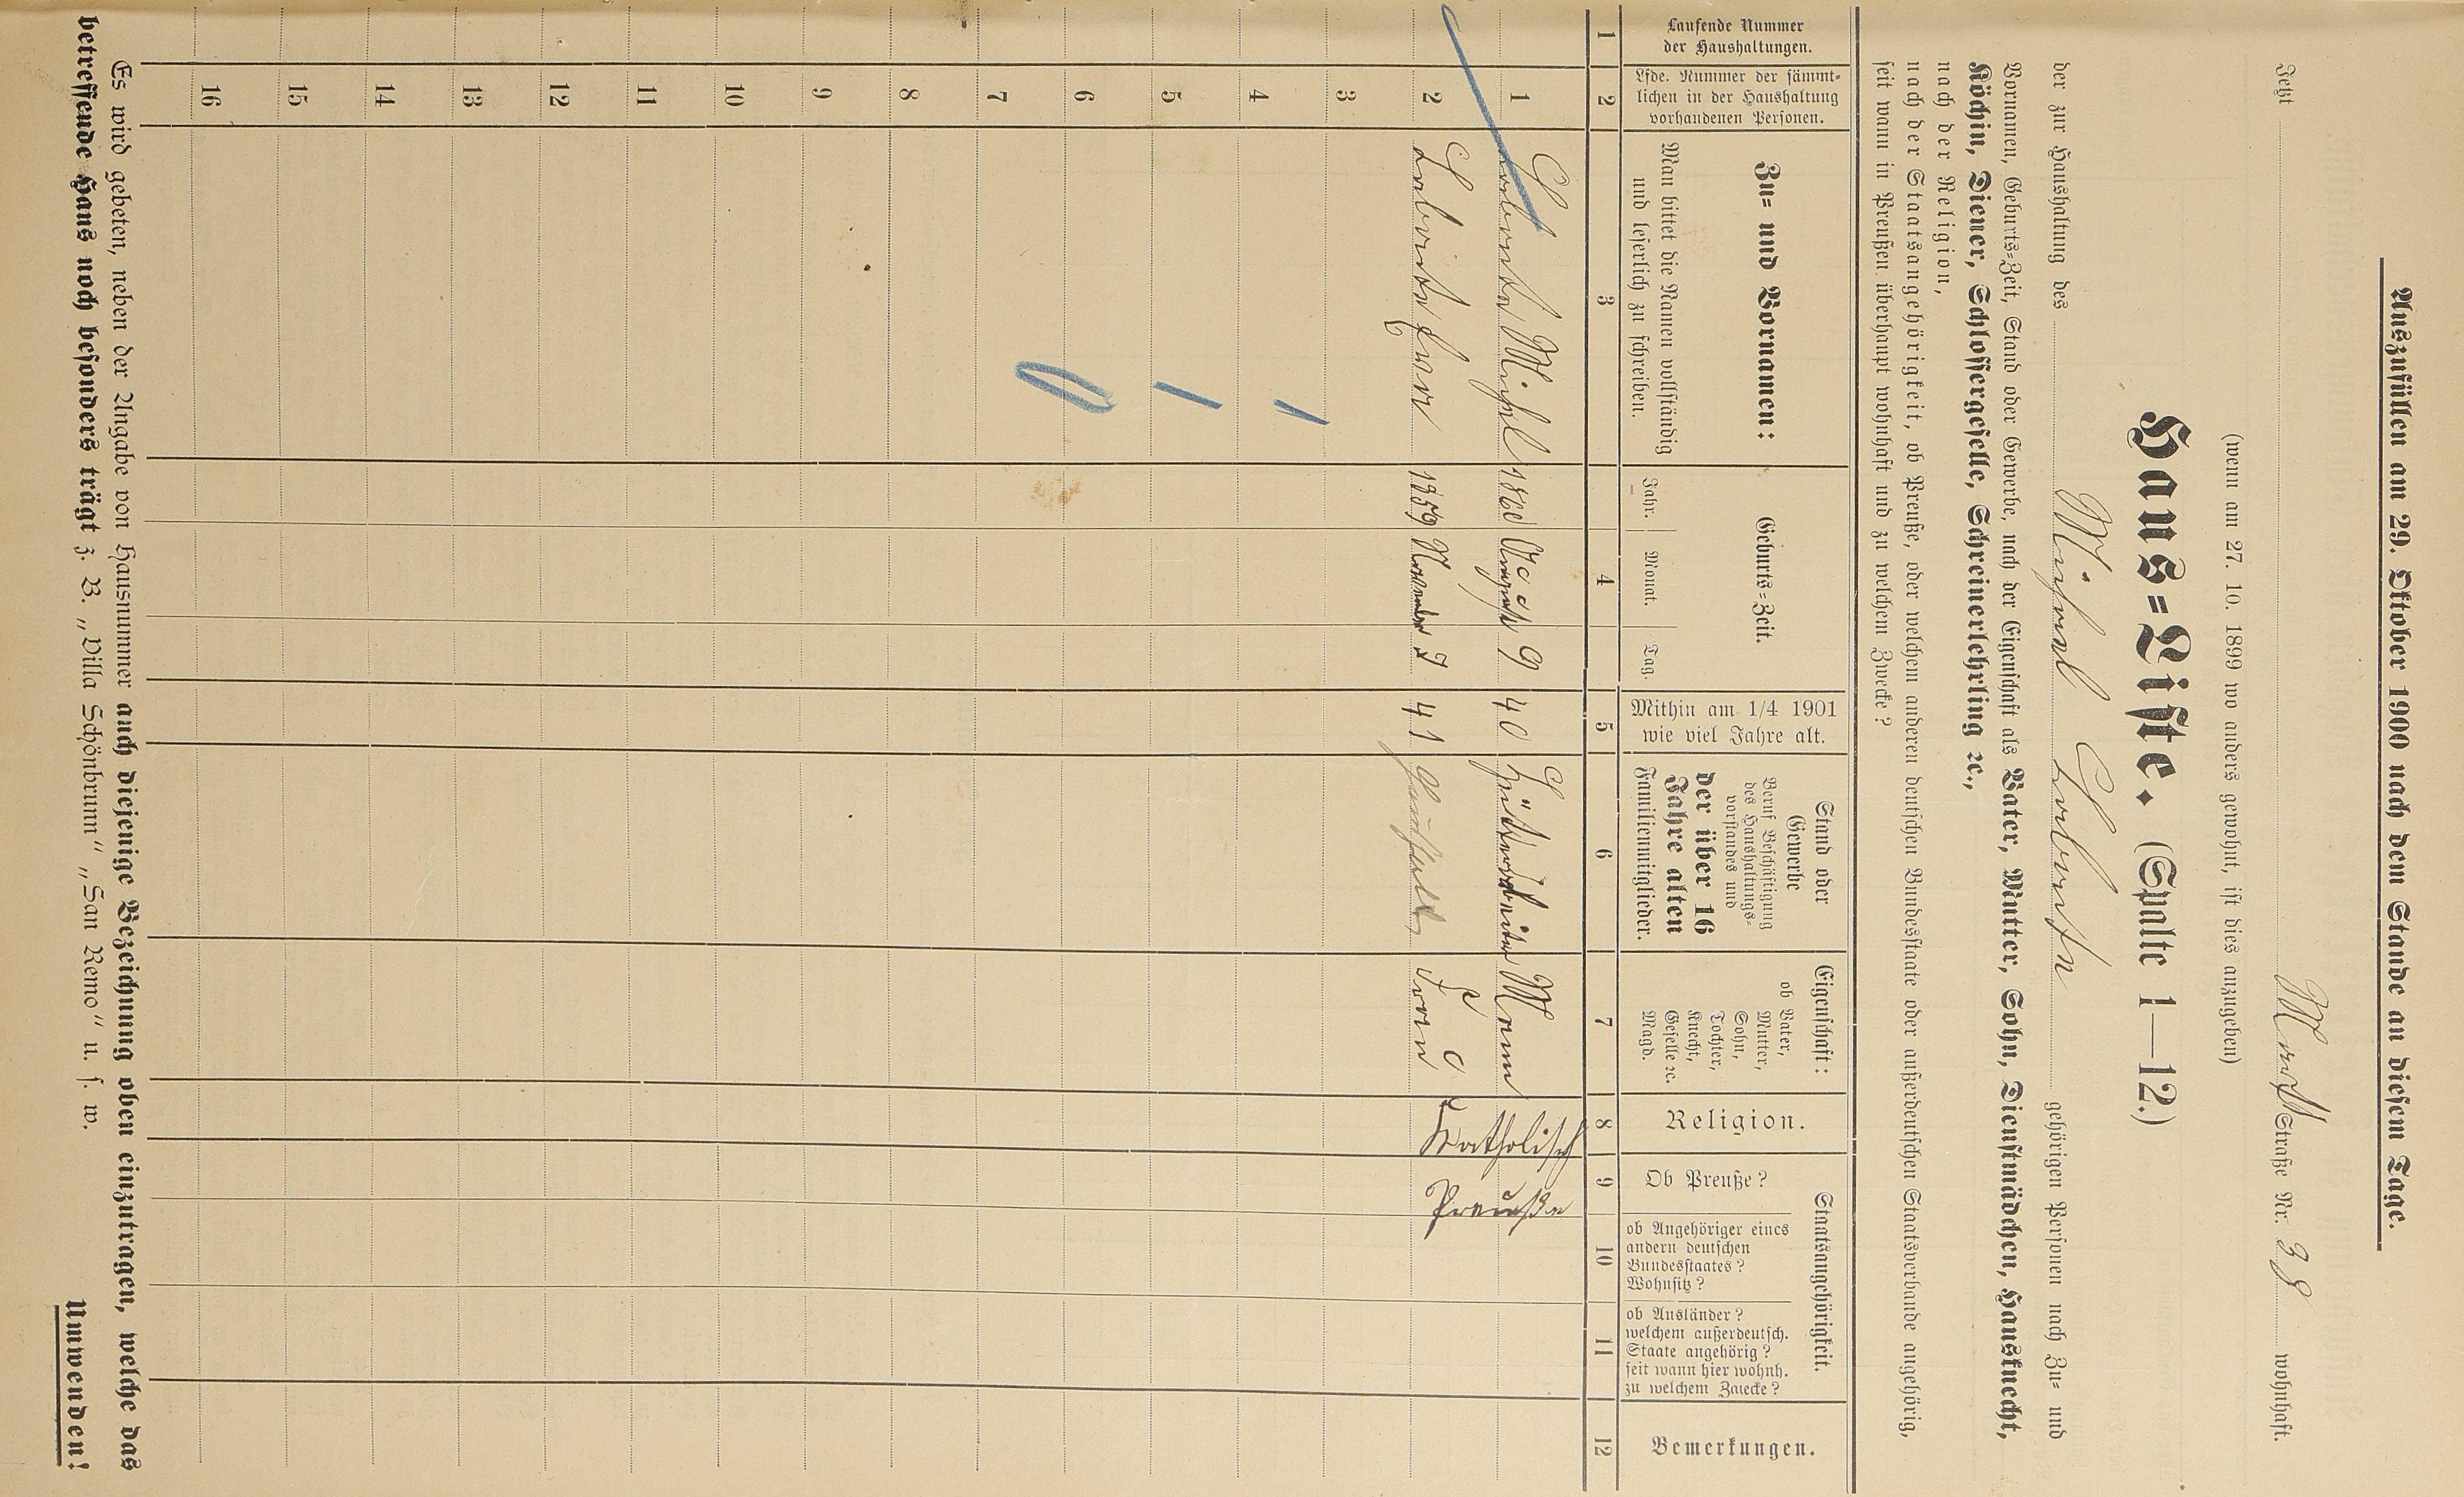 Auszufüllen am 29. Oktober 1900 nach dem Stande an diesem Tage.
Jetzt Straße Nr. 38 wohnhaft.
(wenn am 27. 10. 1899 wo anders gewohnt, ist dies anzugeben)
Haus=Liste. (Spalte 1—12.)
der zur Haushaltung des gehörigen Personen nach Zu= und
Vornamen, Geburts=Zeit, Stand oder Gewerbe, nach der Eigenschaft als Vater, Mutter, Sohn, Dienstmädchen, Hausknecht,
Köchin, Diener, Schlossergeselle, Schreinerlehrling ꝛc.,
nach der Religion,
nach der Staatsangehörigkeit, ob Preuße, oder welchem anderen deutschen Bundesstaate oder außerdeutschen Staatsverbande angehörig,
seit wann in Preußen überhaupt wohnhaft und zu welchem Zwecke?
Laufende Nummer
der Haushaltungen.
Lfde. Nummer der sämmt=
lichen in der Haushaltung
vorhandenen Personen.
Zu= und Vornamen:
Man bittet die Namen vollständig
und leserlich zu schreiben.
Geburts=Zeit.
Jahr. Monat. Tag.
Mithin am 1/4 1901
wie viel Jahre alt.
Stand oder
Gewerbe
Beruf Beschäftigung
des Haushaltungs=
vorstandes und
der über 16
Jahre alten
Familienmitglieder.
Eigenschaft:
ob Vater,
Mutter,
Sohn,
Tochter,
Knecht,
Geselle ꝛc.
Magd.
Religion.
Staatsangehörigkeit.
Ob Preuße?
ob Angehöriger eines
andern deutschen
Bundesstaates?
Wohnsitz?
ob Ausländer?
welchem außerdeutsch.
Staate angehörig?
seit wann hier wohnh.
zu welchem Zwecke?
Bemerkungen.
1 2 3 4 5 6 7 8 9 10 11 12
1 1860 August 9 40 Hüttenarbeiter Mann Katholisch Preuße
2 1859 November 7 41 Frau
3
4
5
6
7
8
9
10
11
12
13
14
15
16
Es wird gebeten, neben der Angabe von Hausnummer auch diejenige Bezeichnung oben einzutragen, welche das
betreffende Haus noch besonders trägt z. B. „Villa Schönbrunn“ „San Remo“ u. s. w.
Umwenden!